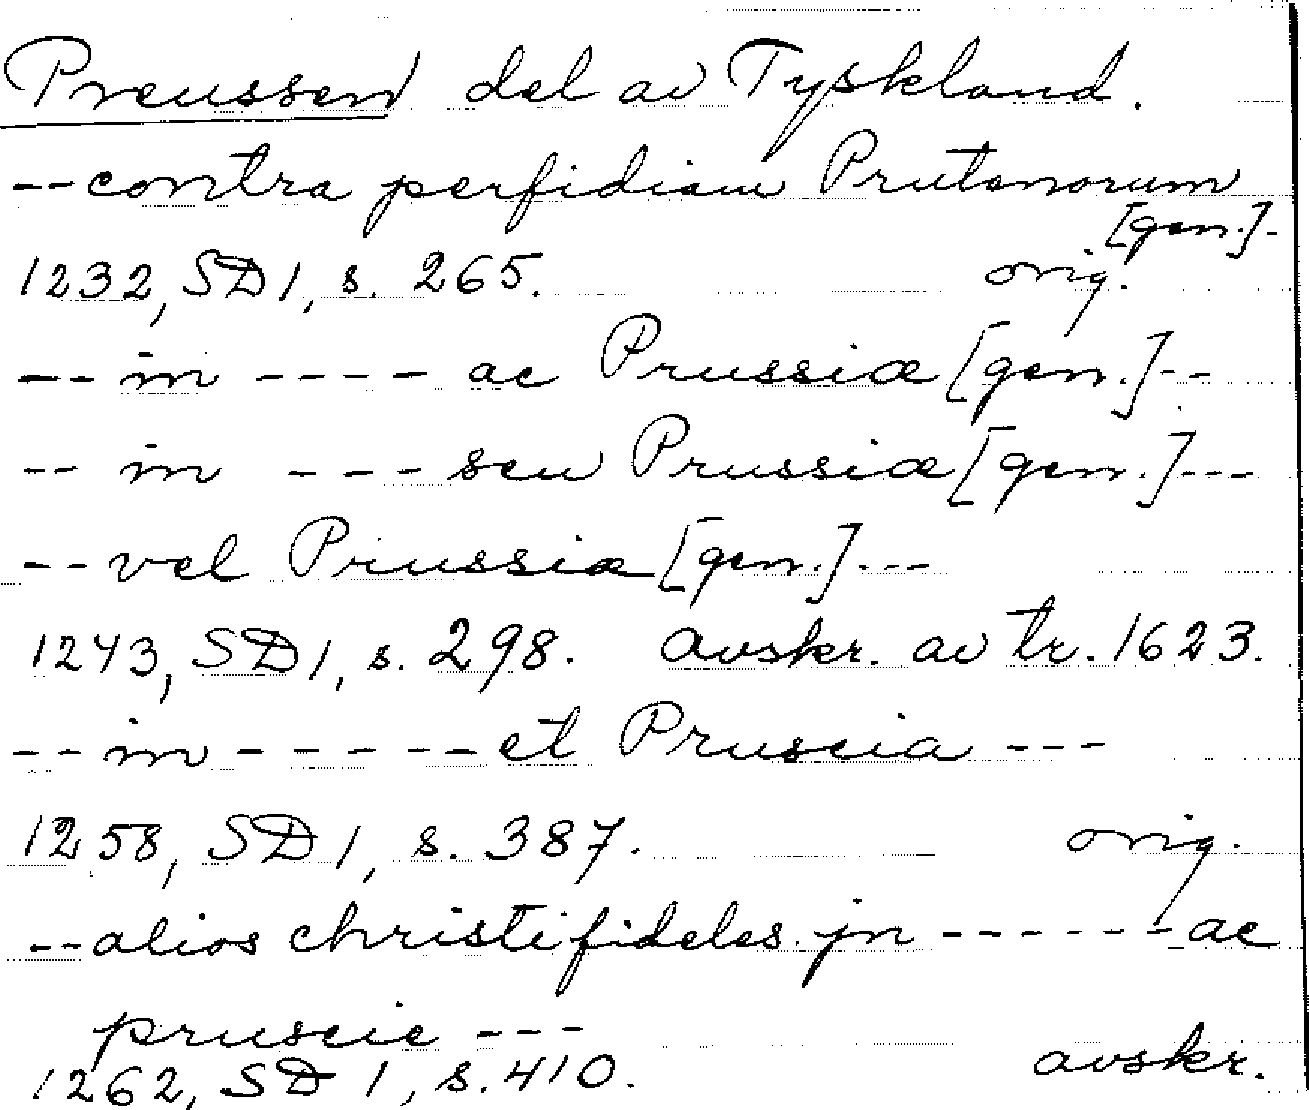 Preussen del av Tyskland.
--contra perfidiam Prutenorum
[gen.]-
1232, SD 1, s. 265. orig.
-- in ---- ac Prussiæ [gen.]--
-- in --- seu Prussiæ [gen.]---
--vel Prussiæ [gen.]---
1243, SD 1, s. 298. avskr. av tr. 1623.
--in -----et Pruscia ---
1258, SD 1, s. 387. orig.
--alios christifideles jn ------ac
pruscie ---
1262, SD 1, s. 410. avskr.